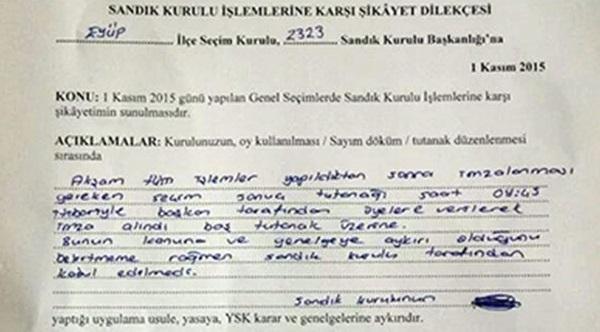 SANDIK KURULU İŞLEMLERİNE KARŞI ŞİKÂYET DİLEKÇESİ
EYÜP İlçe Seçim Kurulu, 2323 Sandık Kurulu Başkanlığı'na
1 Kasım 2015
KONU: 1 Kasım 2015 günü yapılan Genel Seçimlerde Sandık Kurulu İşlemlerine karşı
şikâyetimin sunulmasıdır.
AÇIKLAMALAR: Kurulunuzun, oy kullanılması / Sayım döküm / tutanak düzenlenmesi
sırasında
Akşam tüm işlemler yapıldıktan sonra imzalanması
gereken seçim sonuç tutanağı saat
itibariyle başkan tarafından üyelere verilerek
imza alındı boş tutanak üzerine.
Bunun kanuna ve genelgeye aykırı olduğunu
belirtmeme rağmen sandık kurulu tarafından
kabul edilmedi.
Sandık kurulunun
yaptığı uygulama usule, yasaya, YSK karar ve genelgelerine aykırıdır.